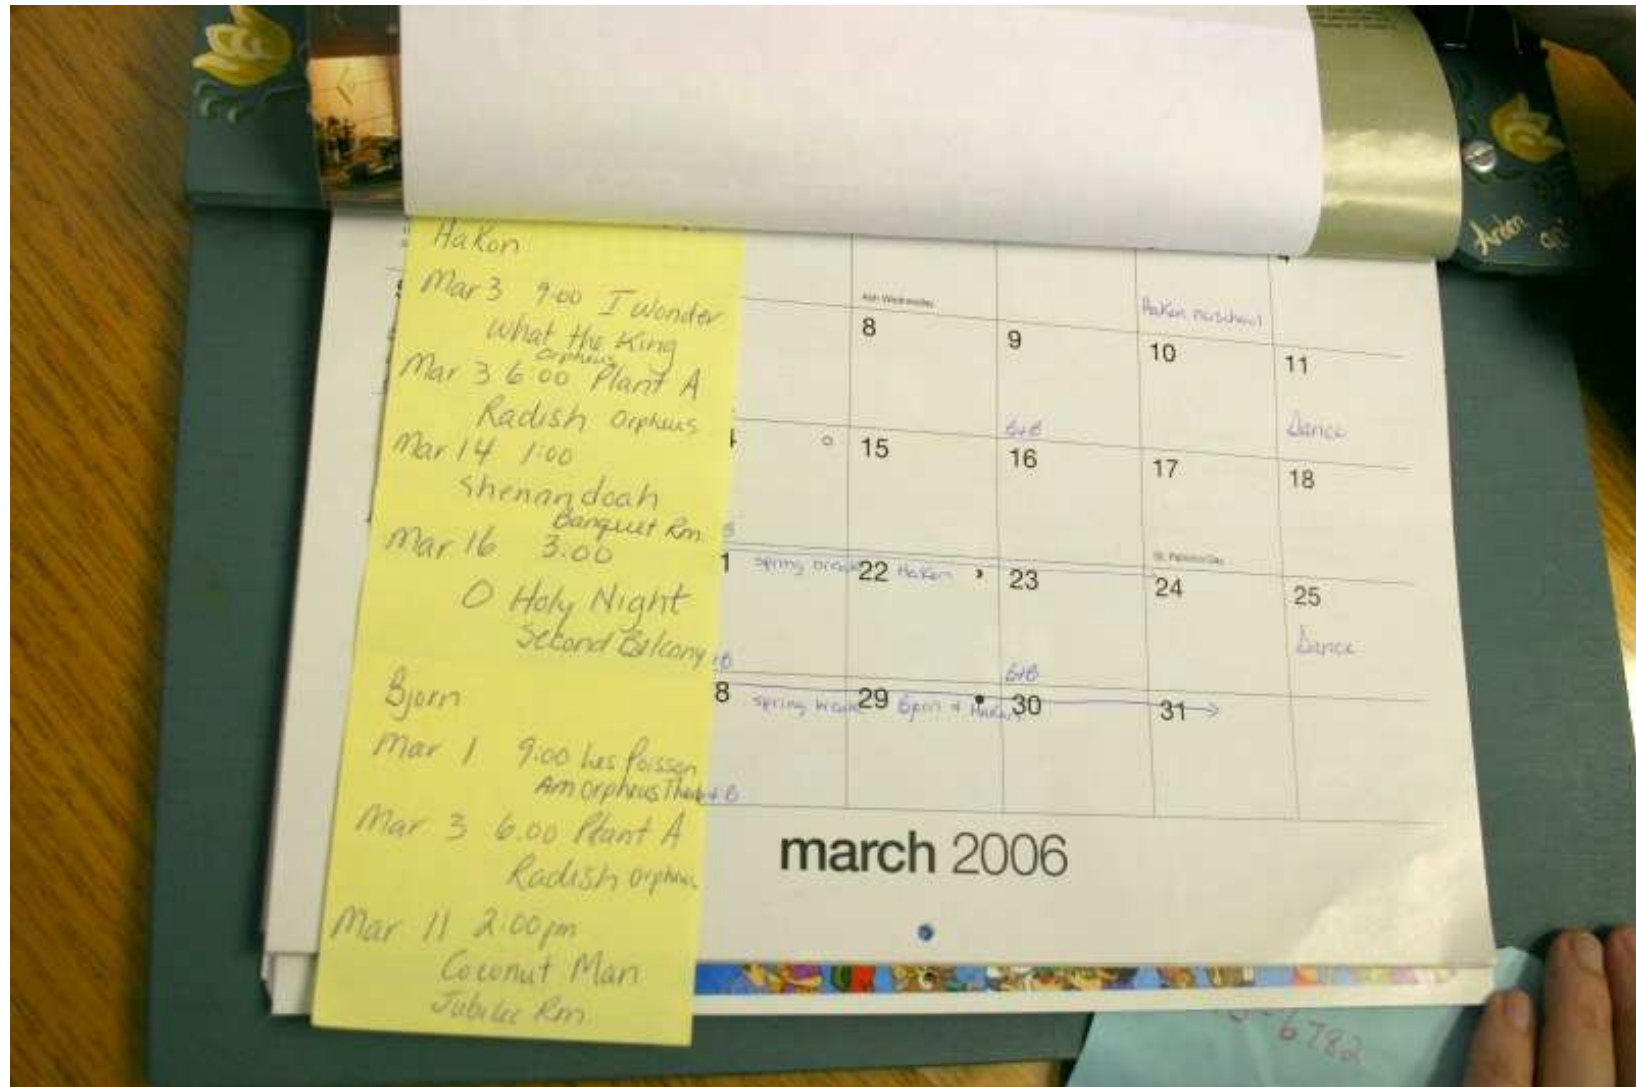 Hakon
Mar 3 9:00 I Wonder
What the King
Orpheus
Mar 3 6:00 Plant A
Radish Orpheus
Mar 14 1:00
Shenandoah
Banquet Rm
Mar 16 3:00
O Holy Night
Second Balcony
Bjorn
Mar 1 9:00 Les Poisson
Am Orpheus
Mar 3 6:00 Plant A
Radish Orpheus
Mar 11 2:00pm
Coconut Man
Jubilee Rm
4
Ash Wednesday
Hakon no school
8
9
10
11
B+B
Dance
15
16
17
18
St. Patrick's Day
1 spring break 22 Hakon 23
24
25
B+B
Dance
8 spring break 29 Bjorn + Hakon 30
31
+B
march 2006
Arden
6782